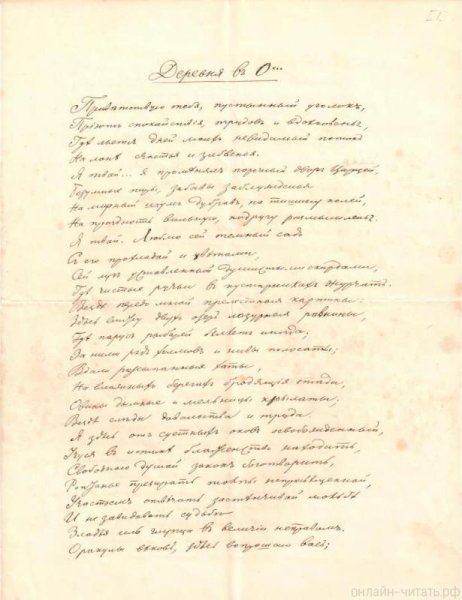 II
Деревня въ О...
Привѣтствую тебя, пустынный уголокъ,
Пріютъ спокойствія, трудовъ и вдохновенья,
Гдѣ льется дней моихъ невидимый потокъ
На лонѣ счастья и забвенья.
Я твой... я промѣнялъ порочный дворъ Царцей,
Безумные пиры, забавы заблужденья
На мирный шумъ дубравъ, на тишину полей,
На праздность вольную, подругу размышленья.
Я твой. Люблю сей темный садъ
Съ его прохладой и цвѣтами,
Сей лугъ уставленный душистыми скирдами,
Гдѣ чистые ручьи въ кустарникахъ журчатъ.
Вездѣ предо мной картины:
Здѣсь вижу двухъ озеръ лазурныя равнины,
Гдѣ парусъ рыбарей бѣлѣетъ иногда;
За ними рядъ холмовъ и нивы полосаты;
Вдали разсыпанныя хаты,
На влажныхъ берегахъ бродящія стада,
Овины дымные и мельницы крылаты;
Вездѣ слѣды довольства и труда.
Я здѣсь отъ суетныхъ оковъ освобожденный,
Учуся въ истинѣ блаженство находить,
Свободною душой законъ боготворить,
Роптанью презирать толпы непросвѣщенной,
Участьемъ отвѣчать застѣнчивой мольбѣ
И не завидовать судьбѣ
Злодѣя иль глупца въ величіи неправомъ.
Оракулы вѣковъ, здѣсь вопрошаю васъ;
онлайн-читать.рф